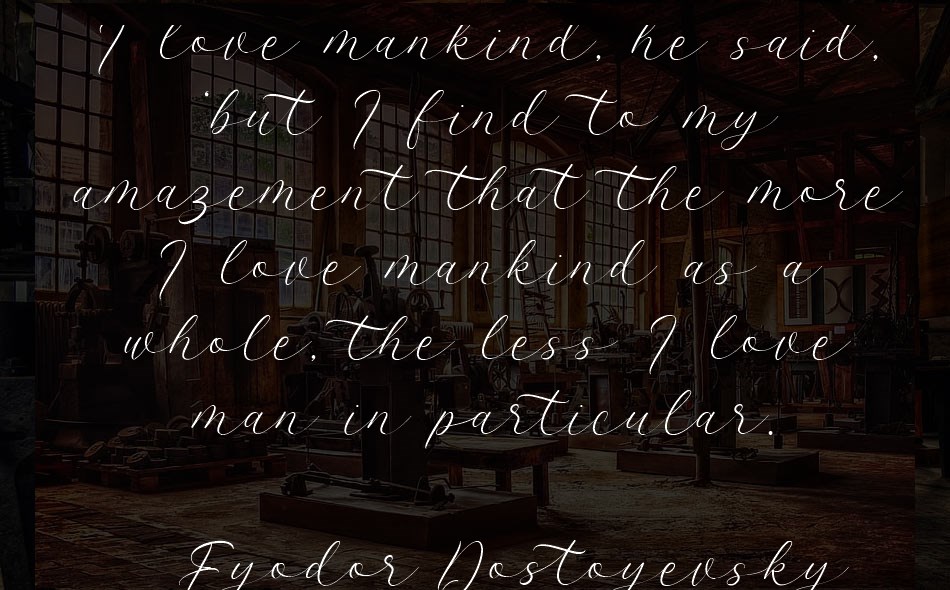 'I love mankind, he said,
'but I find to my
amazement that the more
I love mankind as a
whole, the less I love
man in particular.
Fyodor Dostoyevsky